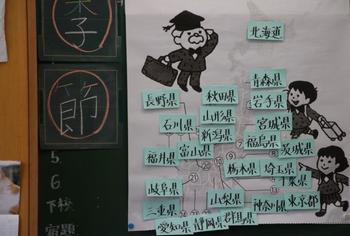 子
節
5
6
下校
宿題
北海道
青森県
長野県
秋田県
岩手県
山形県
石川県
宮城県
新潟県
福島県
福井県
富山県
茨城県
栃木県
埼玉県
千葉県
岐阜県
山梨県
神奈川県
東京都
三重県
群馬県
愛知県
静岡県